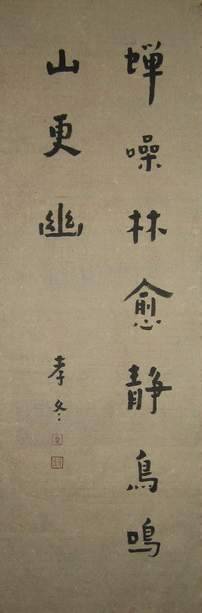 蝉噪林愈静鳥鳴
山更幽
孝冬